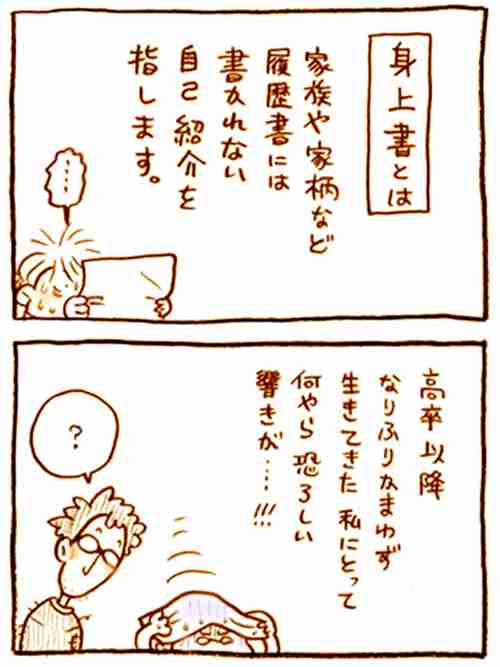 身上書とは
家族や家柄など
履歴書には
書かれない
自己紹介を
指します。
……
高卒以降
なりふりかまわず
生きてきた私にとって
何やら恐ろしい
響きが……!!!
?